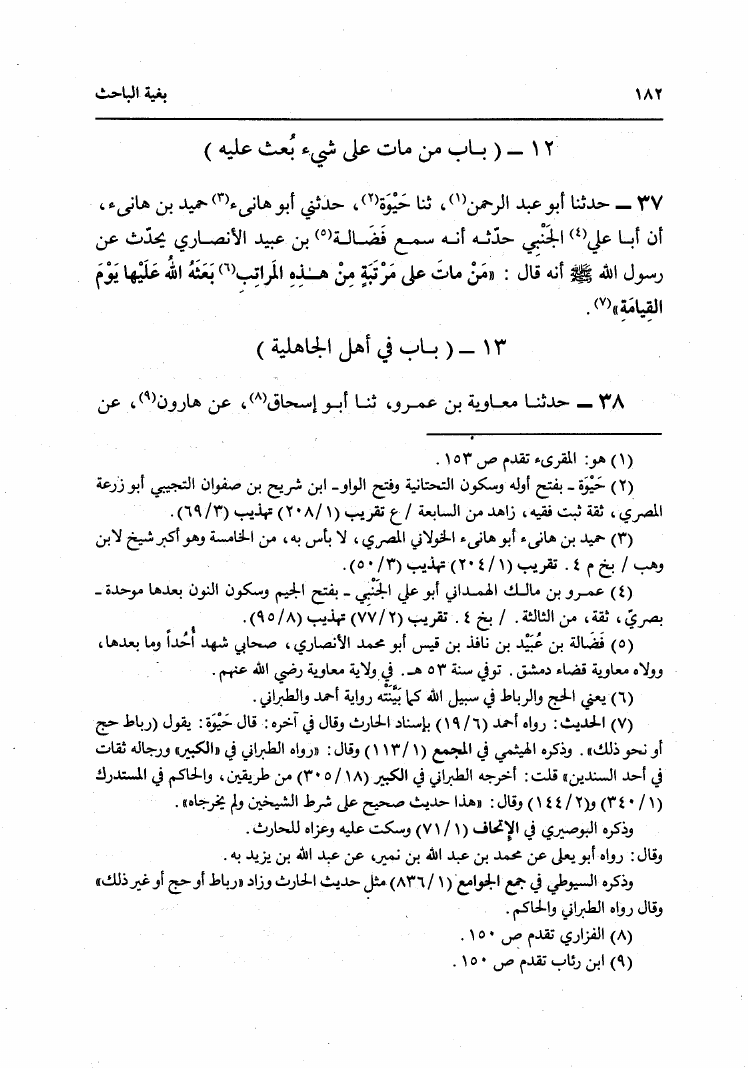 ١٨٢ بغية الباحث
١٢ ــ ( بـاب من مات على شيء بُعث عليه )
٣٧ ــ حدثنا أبو عبد الرحمن(١)، ثنا حَيْوَة(٢)، حدثني أبو هانىء(٣) حميد بن هانىء،
أن أبـا علي(٤) الجَنْبي حدّثـه أنـه سمـع فَضَـالـة(٥) بن عبيد الأنصـاري يحدّث عن
رسول الله ﷺ أنه قال : «مَنْ ماتَ على مَرْتَبَةٍ مِنْ هـٰـذِهِ المَراتِب(٦) بَعَثَهُ اللهُ عَلَيْها يَوْمَ
القِيامَةِ»(٧) .
١٣ ــ ( بـاب في أهل الجاهلية )
٣٨ ــ حدثنـا معـاوية بن عمـرو، ثنـا أبـو إسحاق(٨)، عن هارون(٩)، عن
(١) هو: المقرىء تقدم ص ١٥٣ .
(٢) حَيْوَة ـ بفتح أوله وسكون التحتانية وفتح الواو ـ ابن شريح بن صفوان التجيبي أبو زرعة
المصري، ثقة ثبت فقيه، زاهد من السابعة / ع تقريب (٢٠٨/١) تهذيب (٦٩/٣).
(٣) حميد بن هانىء أبو هانىء الخولاني المصري، لا بأس به، من الخامسة وهو أكبر شيخ لابن
وهب / بخ م ٤ . تقريب (٢٠٤/١) تهذيب (٥٠/٣).
(٤) عمـرو بن مالـك الهمـداني أبو علي الجَنْبي ـ بفتح الجيم وسكون النون بعدها موحدة ـ
بصريّ، ثقة، من الثالثة . / بخ ٤ . تقريب (٧٧/٢) تهذيب (٩٥/٨).
(٥) فَضَالة بن عُبَيْد بن نافذ بن قيس أبو محمد الأنصاري، صحابي شهد أُحُداً وما بعدها،
وولاه معاوية قضاء دمشق . توفي سنة ٥٣ هـ. في ولاية معاوية رضي الله عنهم .
(٦) يعني الحج والرباط في سبيل الله كما بَيَّنَتْه رواية أحمد والطبراني .
(٧) الحديث: رواه أحمد (١٩/٦) بإسناد الحارث وقال في آخره: قال حَيْوَة: يقول (رباط حج
أو نحو ذلك». وذكره الهيثمي في المجمع (١١٣/١) وقال: «رواه الطبراني في «الكبير» ورجاله ثقات
في أحد السندين» قلت: أخرجه الطبراني في الكبير (٣٠٥/١٨) من طريقين، والحاكم في المستدرك
(٣٤٠/١) و(١٤٤/٢) وقال: «هذا حديث صحيح على شرط الشيخين ولم يخرجاه» .
وذكره البوصيري في الإتحاف (٧١/١) وسكت عليه وعزاه للحارث .
وقال: رواه أبو يعلى عن محمد بن عبد الله بن نمير، عن عبد الله بن يزيد به .
وذكره السيوطي في جمع الجوامع (٨٣٦/١) مثل حديث الحارث وزاد «رباط أو حج أو غير ذلك»
وقال رواه الطبراني والحاكم .
(٨) الفزاري تقدم ص ١٥٠ .
(٩) ابن رئاب تقدم ص ١٥٠ .